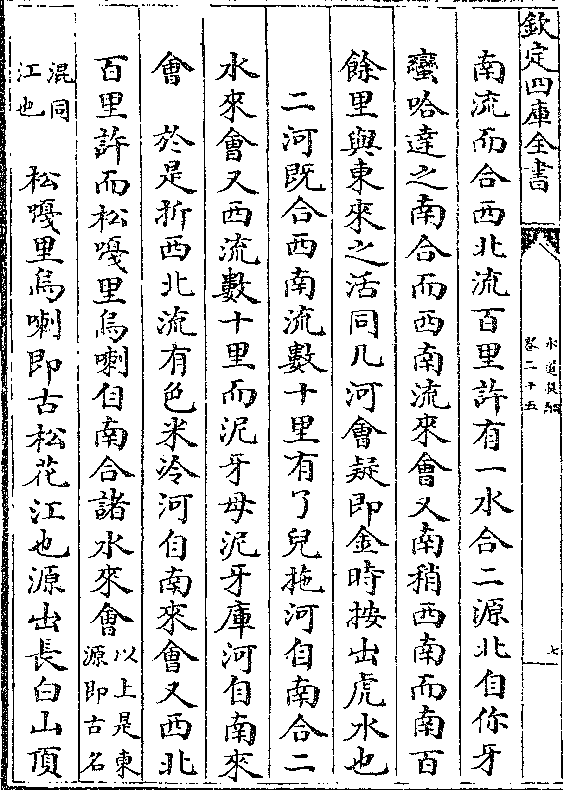 欽定四庫全書
水道提綱
卷二十五
七
南流而合西北流百里許有一水合二源北自你牙
蠻哈達之南合而西南流來會又南稍西南而南百
餘里與東來之活同几河會疑即金時按出虎水也
二河既合西南流數十里有了兒拖河自南合二
水來會又西流數十里而泥牙母泥牙庫河自南來
會 於是折西北流有色米泠河自南來會又西北
百里許而松嘎里烏喇自南合諸水來會以上是東
源即古名
混同
江也 松嘎里烏喇即古松花江也源出長白山頂